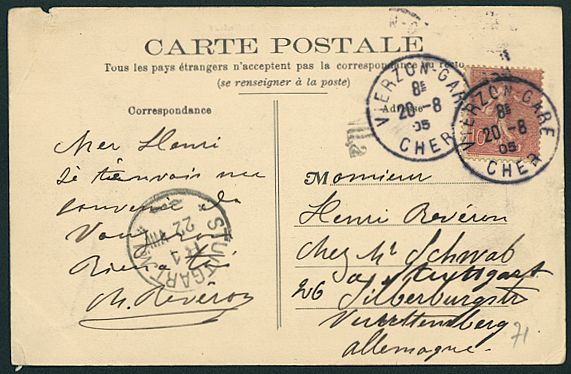 CARTE POSTALE
Tous les pays étrangers n'acceptent pas la correspondance au recto
(se renseigner à la poste)
Correspondance
Adresse
VIERZON-GARE
8E
20-8
05
CHER
VIERZON-GARE
8E
20-8
05
CHER
10
Mer Henri
Je t'envois une
souvenir de
Rien
M. Révéron
STUTTGART
22 VIII
Monsieur
Henri Révéron
Chez Mr Schwab
a Stuttgart
26 Silberburgstr
Vurttemberg
Allemagne
71